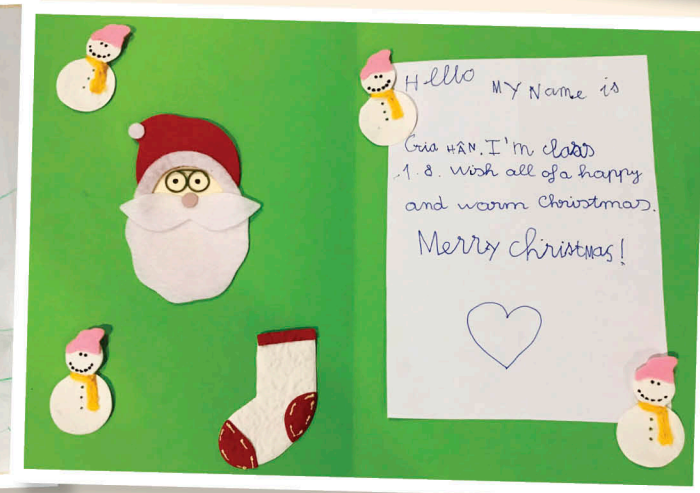 Hello MY Name is
Gia HÂN. I'm class
1.8. Wish all of a happy
and warm Christmas.
Merry christmas!